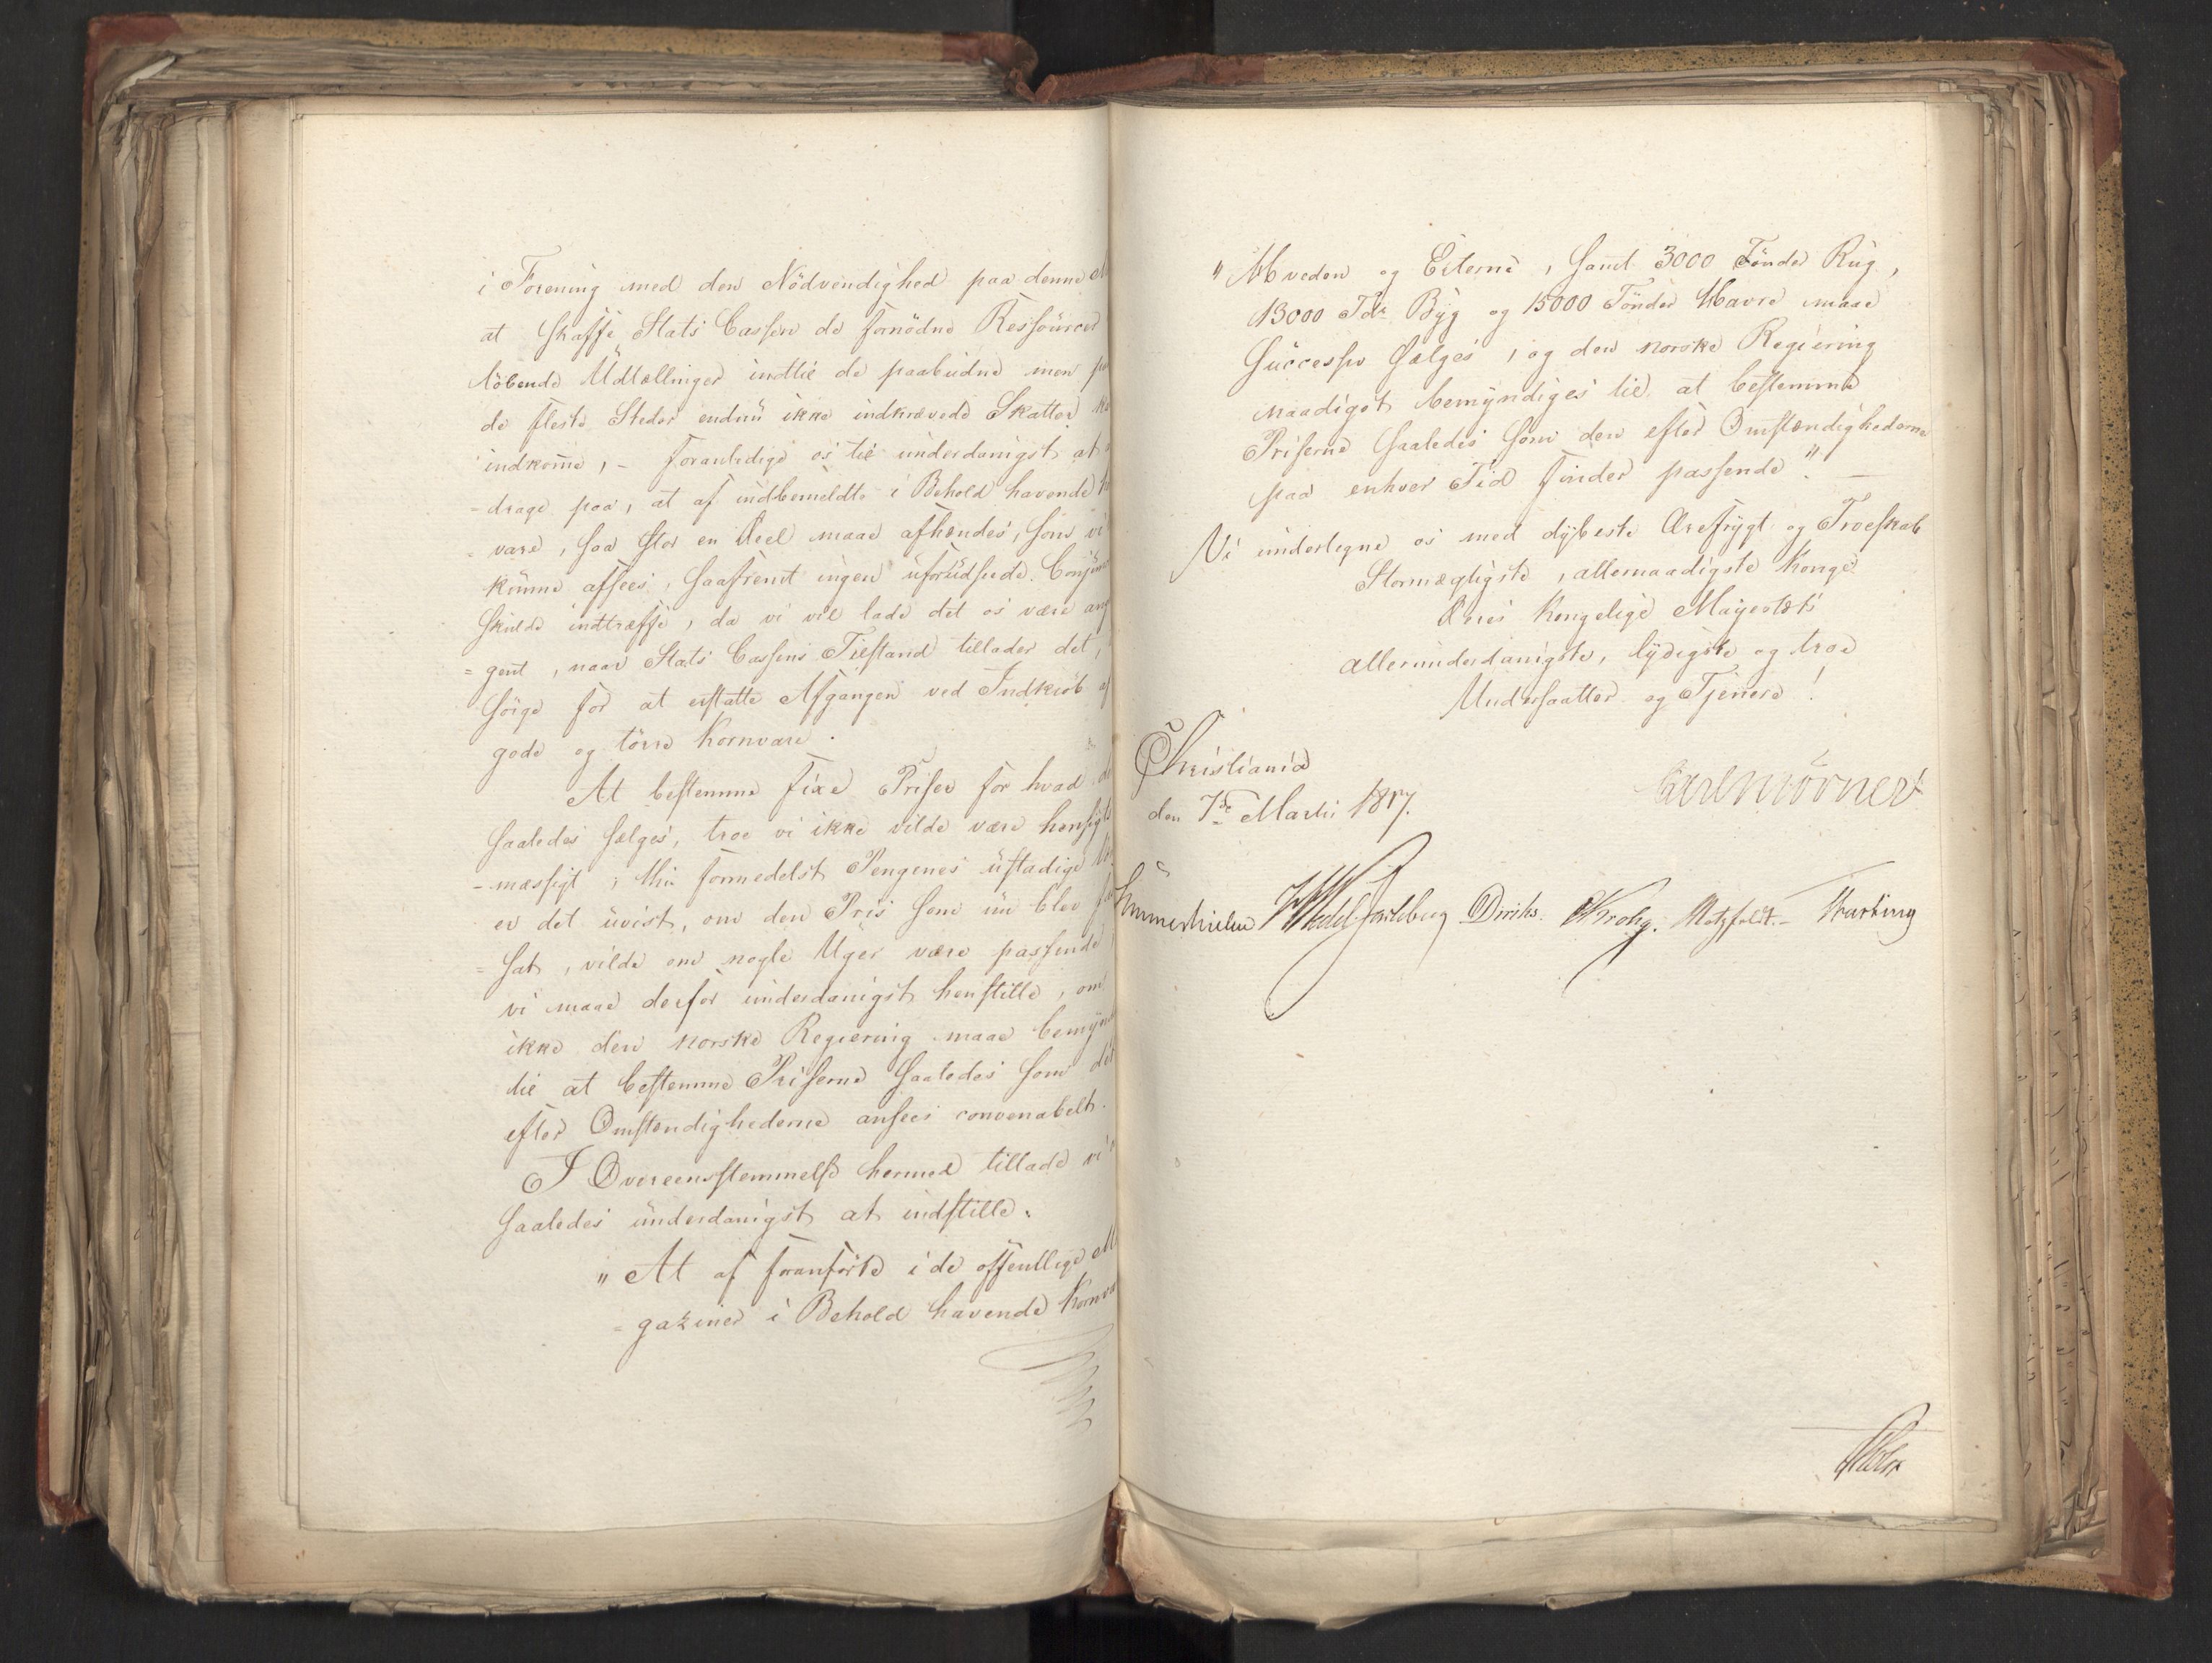 i Forening med den Nödvendighed paa denne
at skaffe Stats Cassen de fornödne Ressourcer
löbende Udtællinger indtil de paabudne men
de fleste Steder endnu ikke indkrævede Skatter
indkom̄e, - foranledige os til underdanigst at
-drage paa, at af indbemeldte i Behold havende
=vare, saa stor en Deel maae afhændes, som vi
kunne afsees, saafremt ingen uforudseede
skulde indtræffe, da vi vil lade det os være
=gent, naar Stats Cassens Tilstand tillader det,
sörge for at erstatte Afgangen ved Indkiöb af
gode og törre Kornvare.
At bestemme fixe Priser for hvad
saaledes sælges, troe vi ikke vilde være
-mæssigt; thi formedelst Pengenes ustadige
er det uvist, om den Pris som nu blev
=sat, vilde om nogle Uger være passende
vi maae derfor underdanigst henstille, om
ikke den norske Regiering maae
til at bestemme Priserne saaledes som det
efter Omstændighederne ansees convenabelt.
I Overeensstemmelse hermed tillade vi
saaledes underdanigst at indstille:
"At af foranförte i de offentlige
=gaziner i Behold havende
"Hveden og Erterne, samt 3000 Tönder Rug,
13000 Tdr Byg og 15000 Tönder Havre maae
successiv sælges, og den norske Regiering
naadigst bemyndiges til at bestemme
Priserne saaledes som den efter Omstændighederne
paa enhver Tid finder passende". -
Vi undertegne os med dybeste Ærefrygt og Troeskab
Stormægtigste, allernaadigste Konge
Deres Kongelige Majestæts
allerunderdanigste, lydigste og troe
Undersaatter og Tjenere!
Christiania
den 7de Martii 1817.
Carl Mörner
Sommerhielm Wedel Jarlsberg Diriks. CKrohg. Motzfeldt.- Hartwig